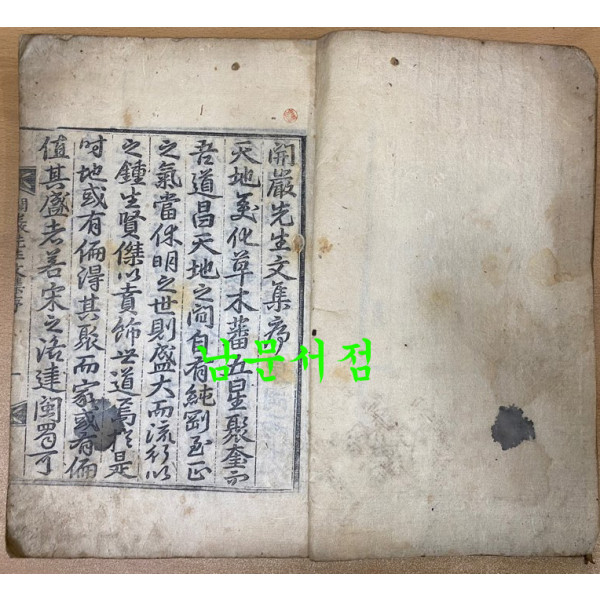 開巖先生文集序
天地变化草木蕃五星聚奎而
吾道昌天地之間自有純剛至正
之氣當休明之世則盛大而流行以
之鍾生賢傑以賁飾世道焉於是
時地或有偏得其聚而家或有偏
值其盛者若宋之洛建閩蜀可
開巖先生文集序
남문서점